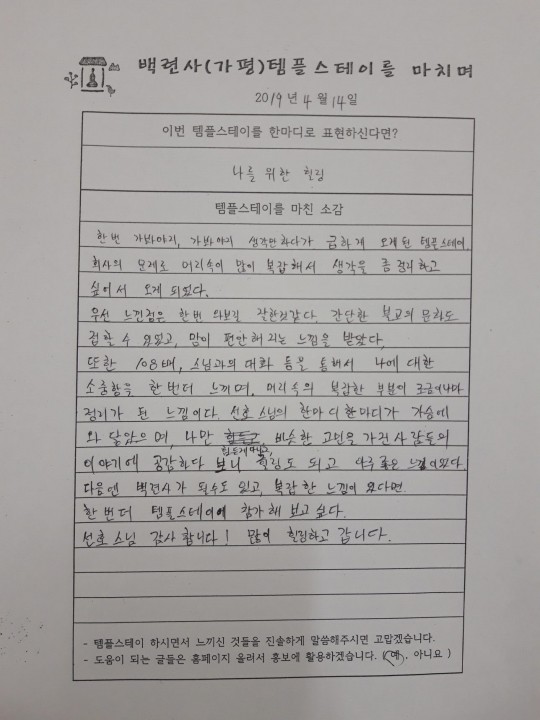 백련사(가평)템플스테이를 마치며
2019년 4월 14일
이번 템플스테이를 한마디로 표현하신다면?
나를 위한 힐링
템플스테이를 마친 소감
한번 가봐야지, 가봐야지 생각만하다가 급하게 오게된 템플스테이.
회사의 문제로 머리속이 많이 복잡해서 생각을 좀 정리하고
싶어서 오게 되었다.
우선 느낀점은 한번 와보길 잘한것같다. 간단한 불교의 문화도
접할 수 있었고, 맘이 편안해 지는 느낌을 받았다,
또한 108배, 스님과의 대화 등을 통해서 나에 대한
소중함을 한번더 느끼며, 머리속의 복잡한 부분이 조금이나마
정리가 된 느낌이다. 선호 스님의 한마디 한마디가 가슴에
와 닿았으며, 나만 힘들고, 비슷한 고민을 가진 사람들의
힘든게 아니고,
이야기에 공감하다 보니 힐링도 되고 아주 좋은 느낌이었다.
다음엔 백련사가 될수도 있고, 복잡한 느낌이 있다면.
한번더 템플스테이에 참가해 보고싶다.
선호스님 감사합니다! 많이 힐링하고 갑니다.
- 템플스테이 하시면서 느끼신 것들을 진솔하게 말씀해주시면 고맙겠습니다.
- 도움이 되는 글들은 홈페이지 올려서 홍보에 활용하겠습니다. (예, 아니요)